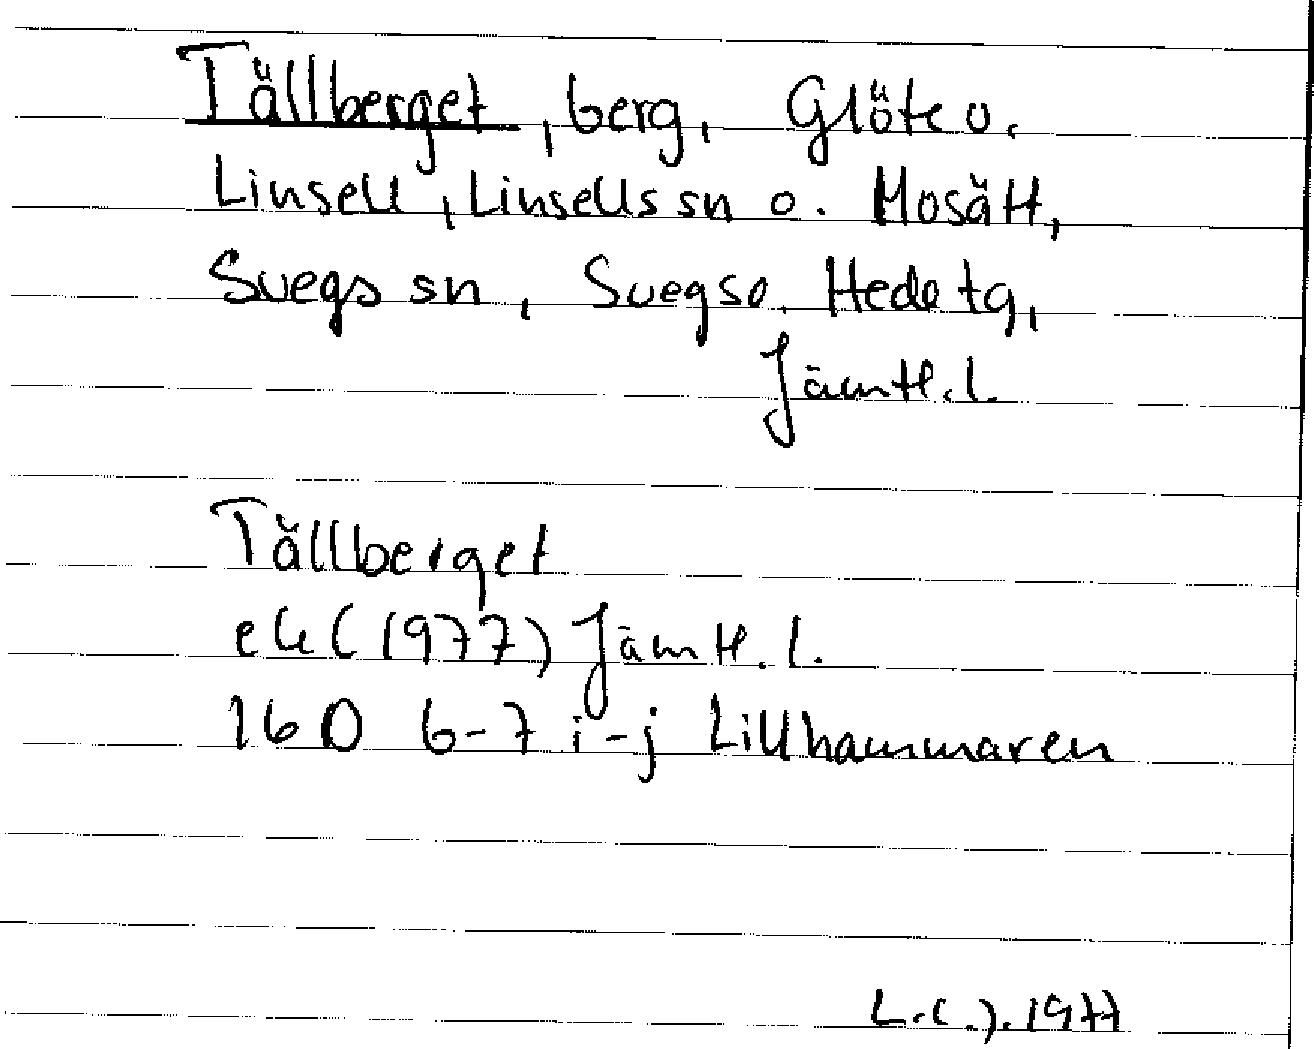 Tällberget, berg, Glöte o.
Linsell, Linsells sn o. Mosätt,
Svegs sn, Svegs o. Hede tg,
Jämtl. l.
Tällberget
ek (1977) Jämtl. l.
16 D 6-7 i-j Lillhammaren
1977